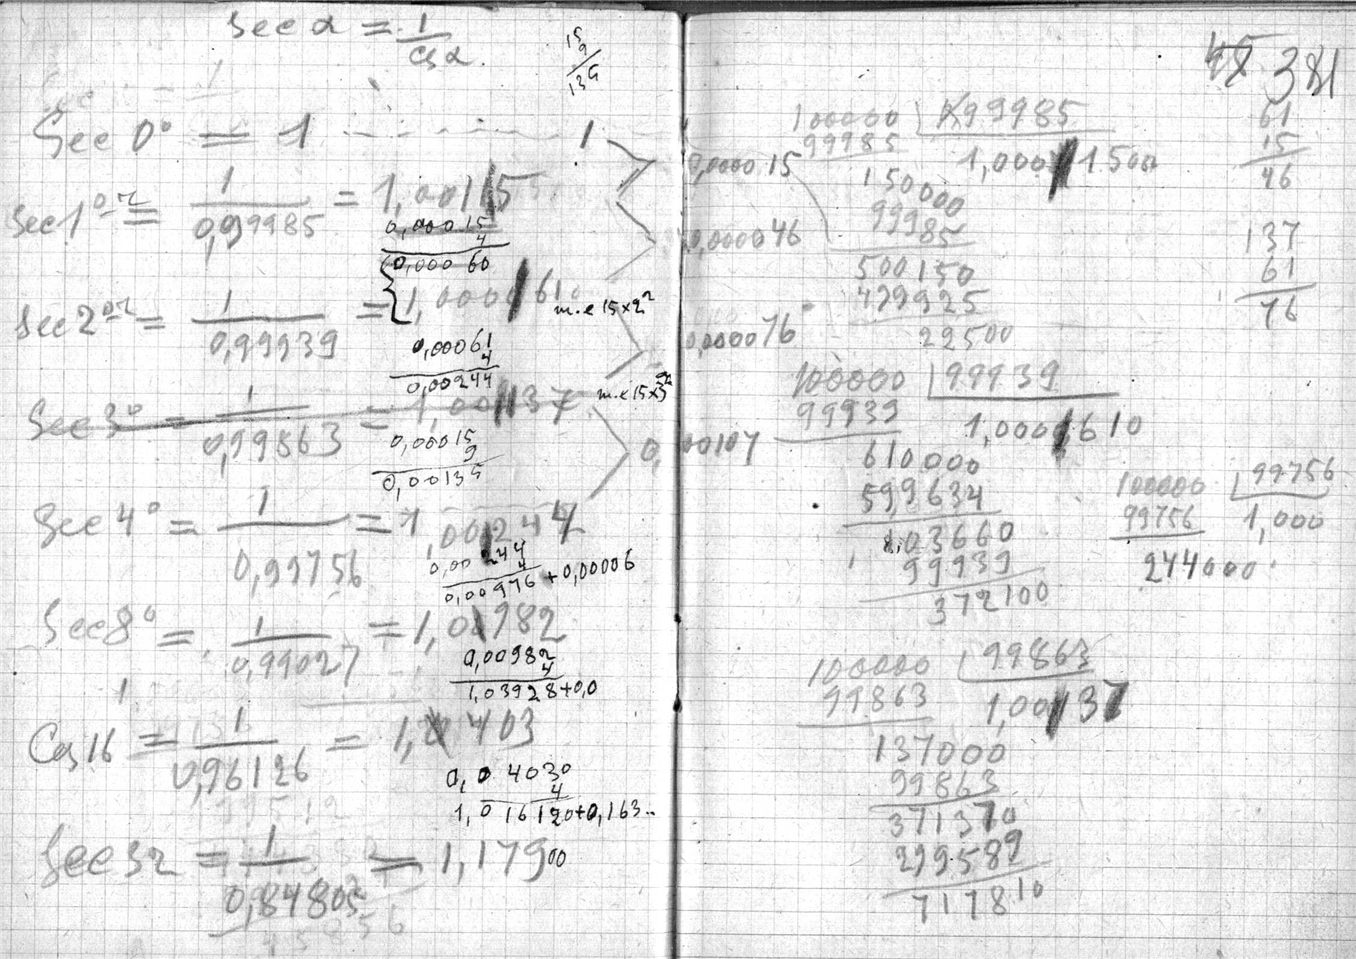 Sec α = 1/cos α
15
9
135
Sec 0° = 1 - - - - - 1
Sec 1° = 1/0,99985 = 1,0015
0,00015
4
0,00060
Sec 2° = 1/0,99939 = 1,000610
т.е 15×2²
0,00061
4
0,00244
Sec 3° = 1/0,99863 = 1,00137
т.е 15×3²
0,00015
9
0,00135
Sec 4° = 1/0,99756 = 1,00244
0,00244
4
0,00976 + 0,00006
Sec 8° = 1/0,99027 = 1,01982
0,00982
4
1,03928+0,0
Cos 16 = 1/0,96126 = 1,0403
0,04030
4
1,016120+0,163..
Sec 32 = 1/0,84805 = 1,17900
0,000015
0,000046
0,000076
0,00107
381
100000 | 99985
99985 1,0001500
150000
99985
500150
499925
22500
61
15
46
137
61
76
100000 | 99939
99939 1,0001610
610000
599634
103660
99939
372100
100000 | 99756
99756 1,000
244000
100000 | 99863
99863 1,00137
137000
99863
371370
299589
717810